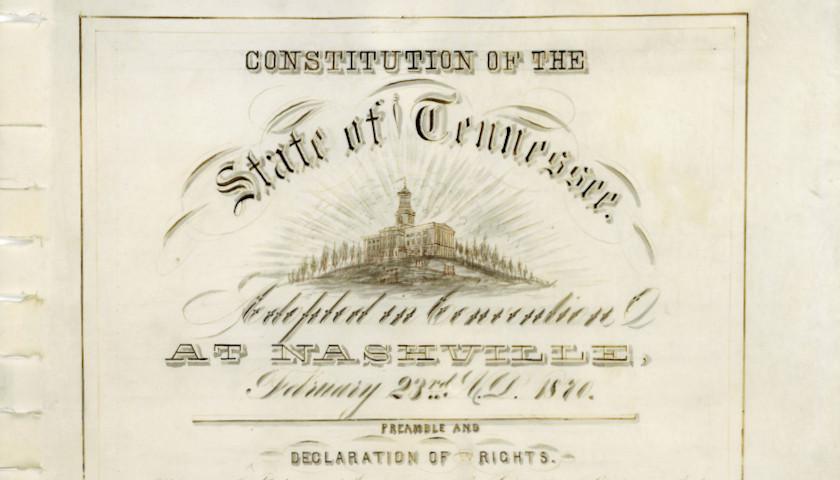 CONSTITUTION OF THE
State of Tennessee.
Adopted in Convention,
AT NASHVILLE,
February 23rd A.D. 1870.
PREAMBLE AND
DECLARATION OF RIGHTS.